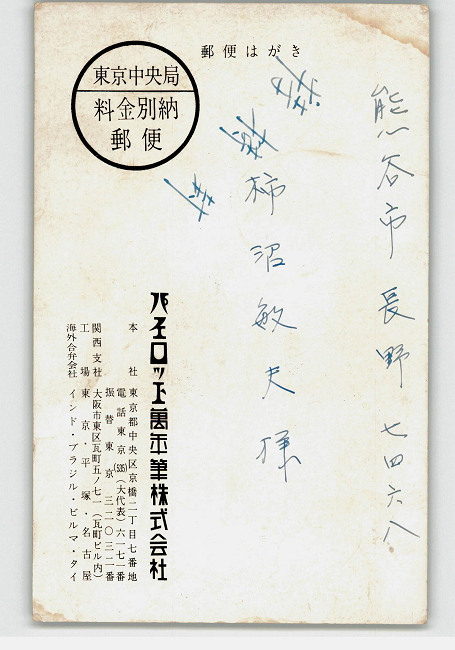 郵便はがき
東京中央局
料金別納
郵便
熊谷市長野七四六八
柿沼敏夫様
パイロット萬年筆株式会社
本社 東京都中央区京橋二丁目七番地
電話東京(535)(大代表)六一七一番
振替東京三二〇三二番
関西支社 大阪市東区瓦町五ノ七一(瓦町ビル内)
工場 東京・平塚・名古屋
海外合弁会社 インド・ブラジル・ビルマ・タイ